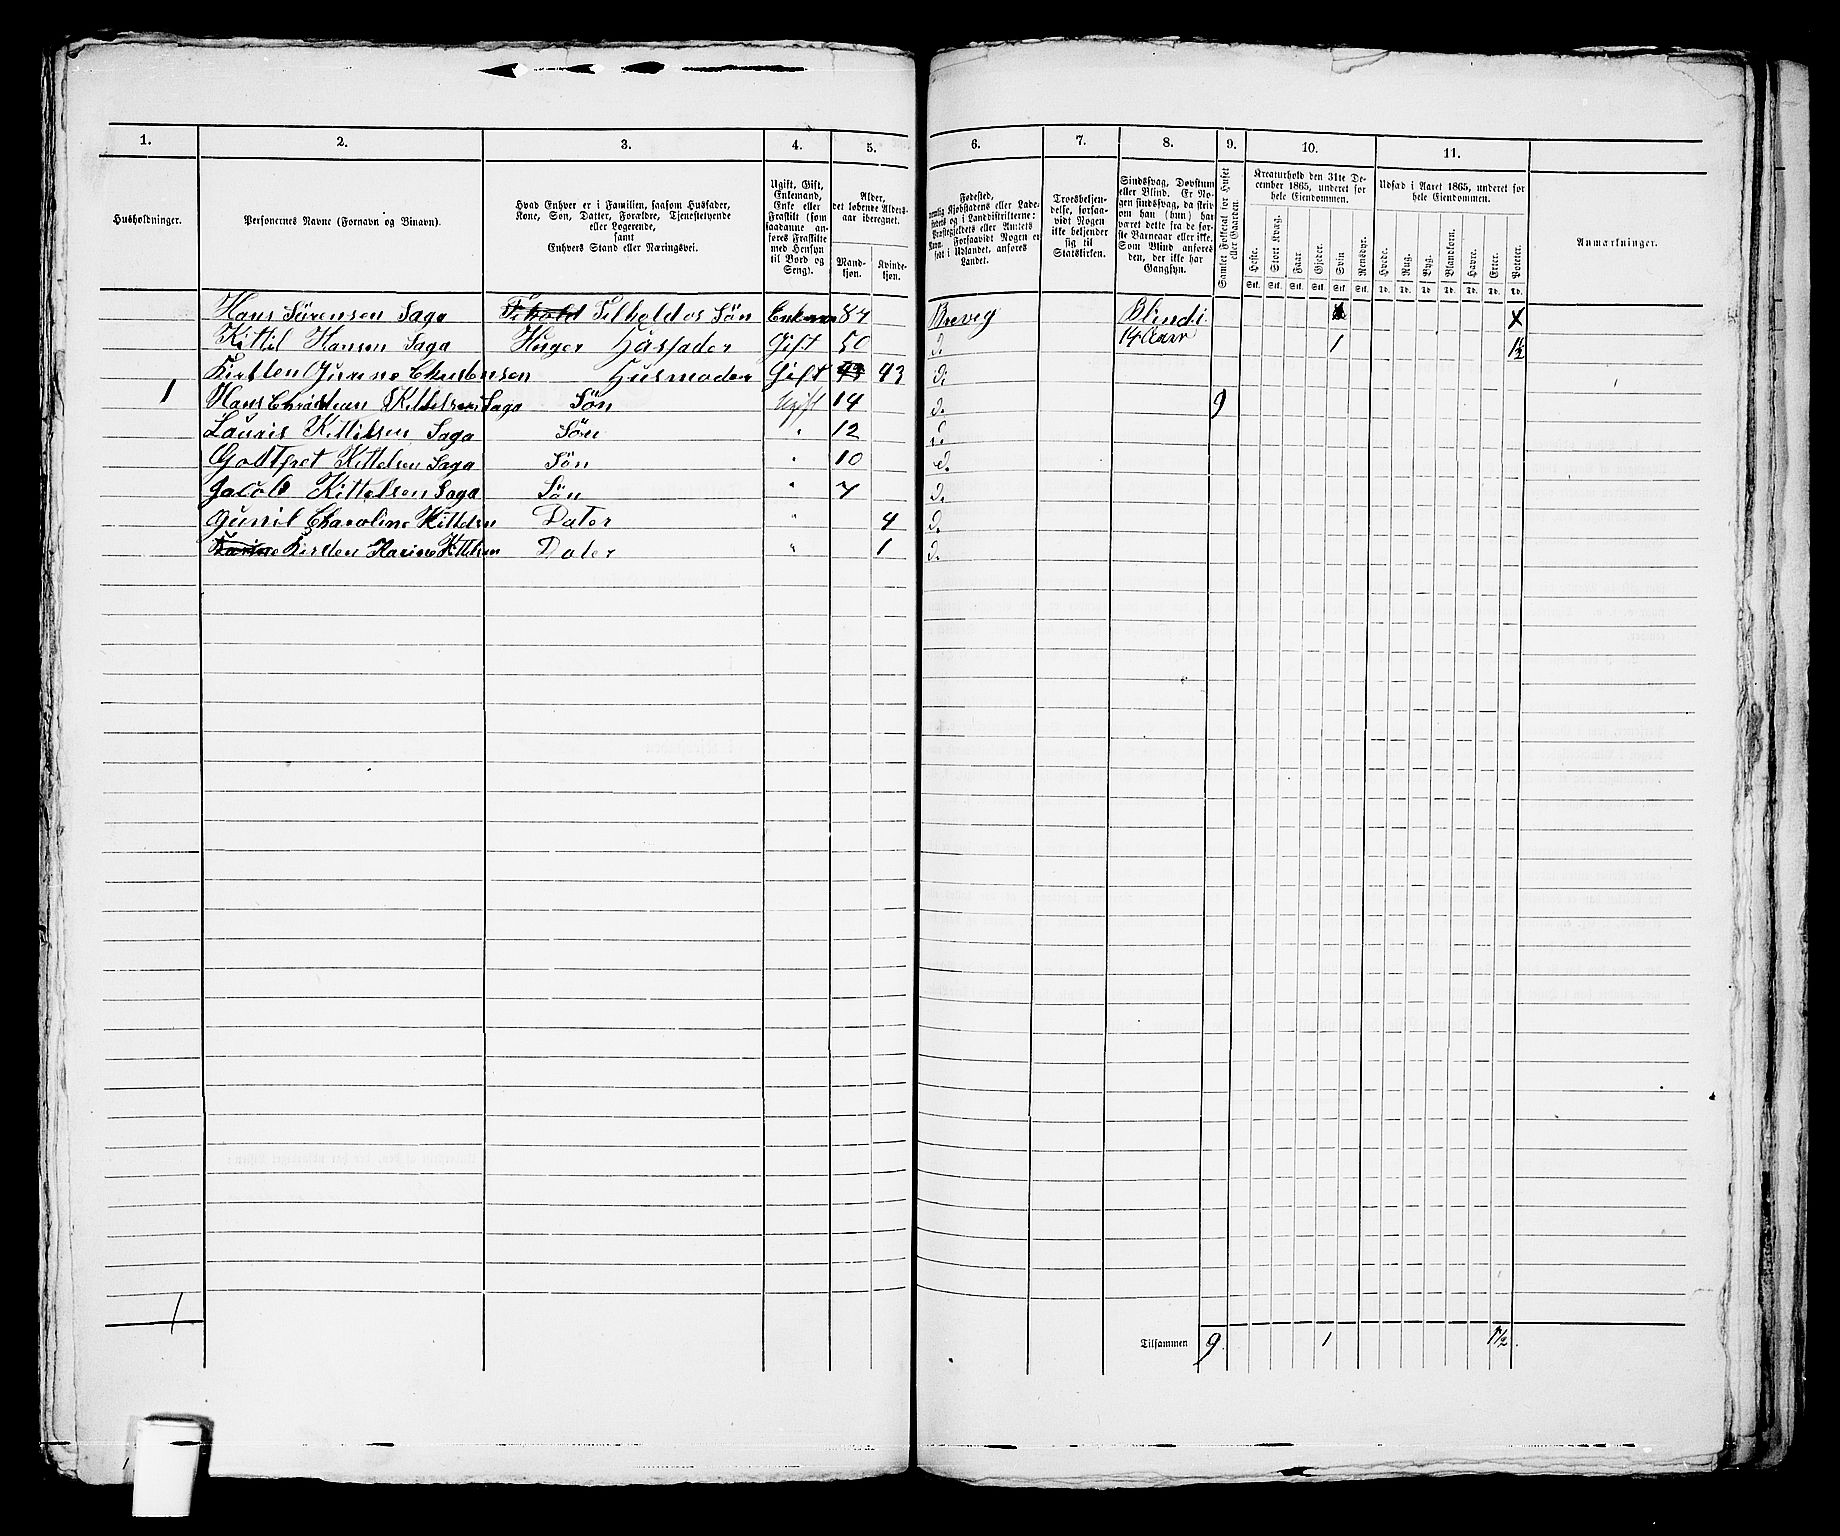 1. 2. 3. 4. 5. 6. 7. 8. 9. 10. 11.
Husholdninger.
Personernes Navne (Fornavn og Binavn).
Hvad Enhver er i Familien, saasom Husfader,
Kone, Søn, Datter, Forældre, Tjenestetyende
eller Logerende,
samt
Enhvers Stand eller Næringsvei.
Ugift, Gift,
Enkemand,
Enke eller
Fraskilt (som
saadanne an-
føres Fraskilte
med Hensyn
til Bord og
Seng).
Alder,
det løbende Alders-
aar iberegnet.
Mand-
kjøn.
Kvinde-
kjøn.
Fødested,
nemlig Kjøbstadens eller Lade-
stedets og i Landdistrikterne:
Præstegjeldets eller Amtets
Navn. Forsaavidt Nogen er
født i Udlandet, anføres
Landet.
Troesbekjen-
delse, forsaa-
vidt Nogen
ikke bekjender
sig til
Statskirken.
Sindssvag, Døvstum
eller Blind. Er No-
gen sindssvag, da skri-
ves om han (hun) har
været dette fra de før-
ste Barneaar eller ikke.
Som Blind anføres
den, der ikke har
Gangsyn.
Samlet Folketal for Huset
eller Gaarden.
Kreaturhold den 31te De-
cember 1865, anført for
hele Eiendommen.
Heste. Stort Kvæg. Faar Gjeder. Svin Rensdyr.
Stk. Stk. Stk. Stk. Stk Stk.
Udsæd i Aaret 1865, anført for
hele Eiendommen.
Hvede. Rug. Byg. Blandkorn. Havre. Erter. Poteter.
Td. Td. Td. Td. Td. Td. Td.
Anmærkninger.
Hans Sörensen Saga Søn 84 Brevig Blind i
Kittil Hansen Saga Gift 50 do 14 Aar 1 1½
Kirsten Husmoder Gift 43 do
1 Hans Christian Kittelsen Saga Sön Ugift 14 do 9
Lauris Kittilsen Saga Sön " 12 do
Godtfret Kittelsen Saga Sön " 10 do
Jacob Kittelsen Saga Sön " 7 do
Gunil Charoline Kittelsen Dater " 4 do
Kirsten Karine Kittelsen Dater " 1 do
1
Tilsammen 9 1 1½